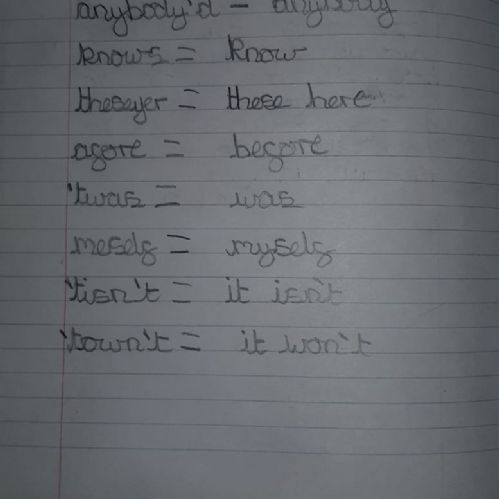 anybody'd = anybody
knows = know
theseyer = these here
afore = before
'twas = was
meself = myself
'tisn't = it isn't
'town't = it won't